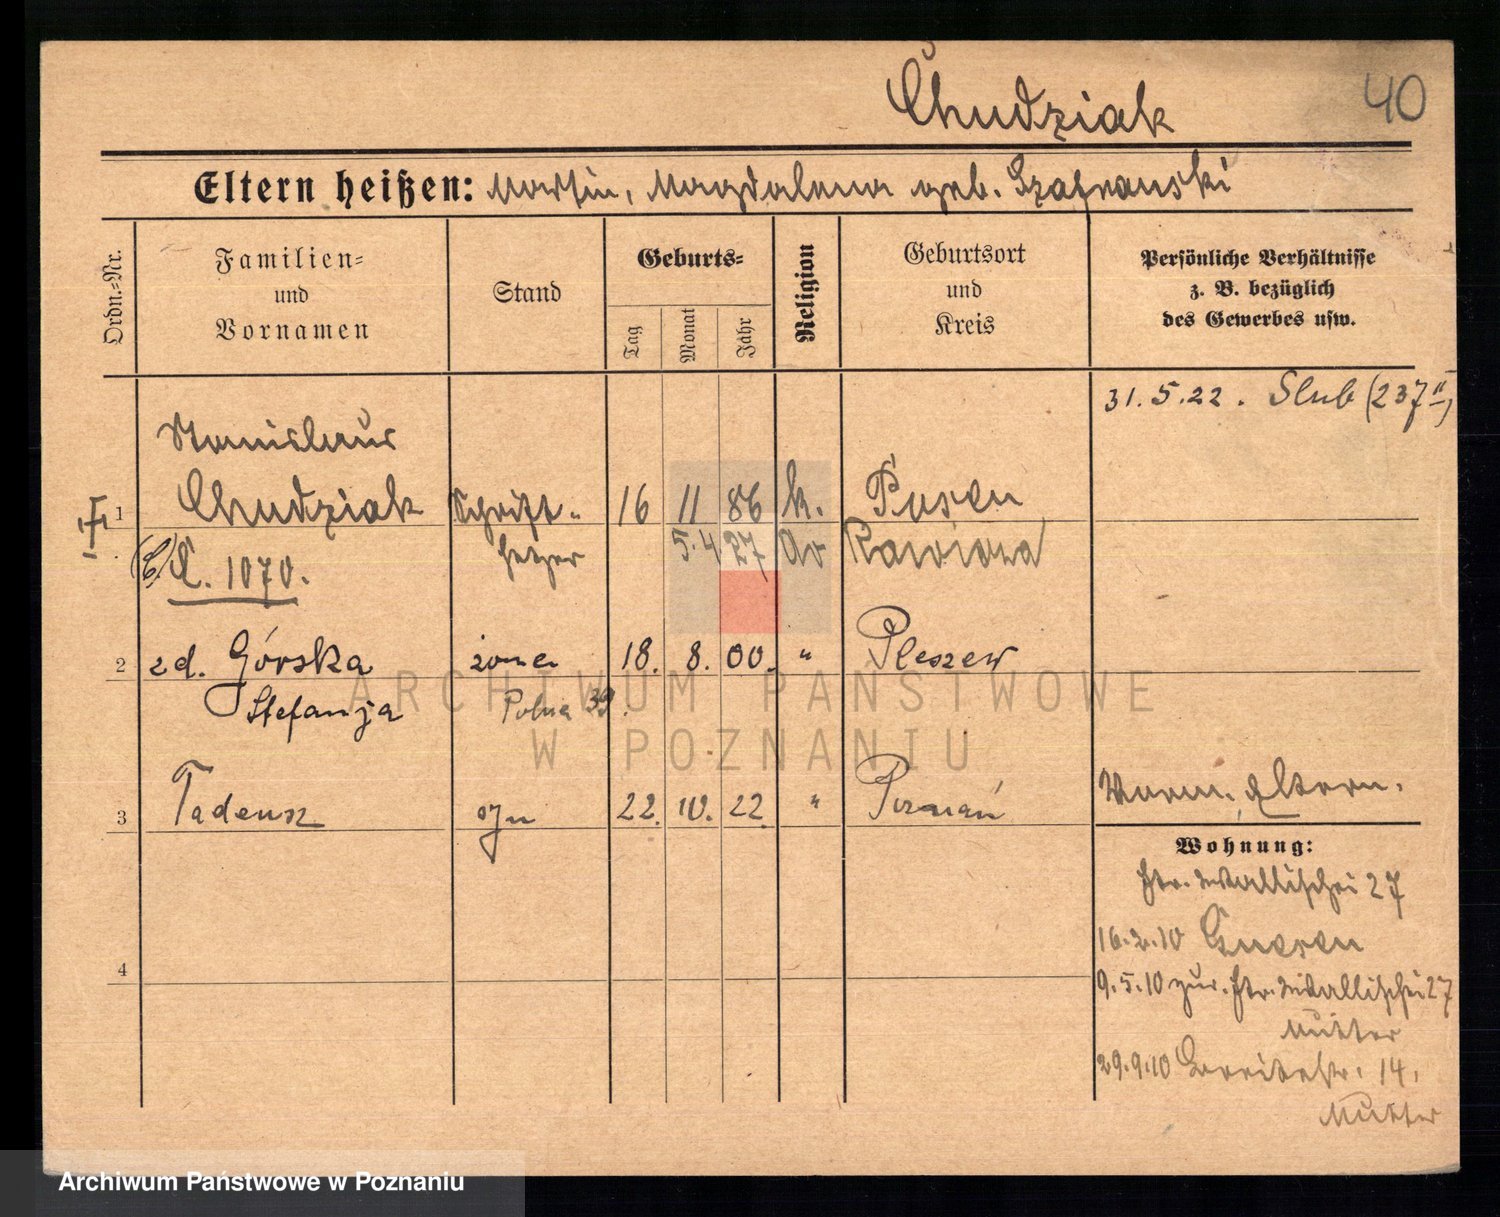 Chudziak
40
Eltern heißen: Martin, Magdalena geb. Szafranski
Ordn.=Nr.
Familien=
und
Vornamen
Stand
Geburts=
Tag
Monat
Jahr
Religion
Geburtsort
und
Kreis
Persönliche Verhältnisse
z. B. bezüglich
des Gewerbes usw.
31.5.22. Slub (237 II)
Stanislaus
1 Chudziak Schrift- 16 11 86 k. Posen
setzer 5.4 27
C. 1070.
2 zd. Górska żona 18. 8. 00. " Pleszew
Stefanja Polna 39.
3 Tadeusz syn 22. 10. 22. " Poznań
Vorm. Eltern.
Wohnung:
Wallischei 27
16.2.10 Gnesen
9.5.10 zur. Wallischei 27
Mutter
29.9.10 Breitestr. 14,
Mutter
4
ARCHIWUM PAŃSTWOWE
W POZNANIU
Archiwum Państwowe w Poznaniu